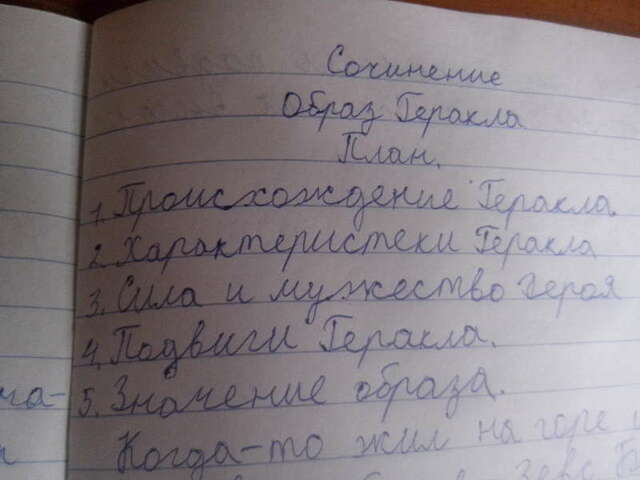 Сочинение
Образ Геракла
План.
1. Происхождение Геракла.
2. Характеристеки Геракла
3. Сила и мужество героя
4. Подвиги Геракла.
5. Значение образа.
Когда-то жил на горе
Зевс